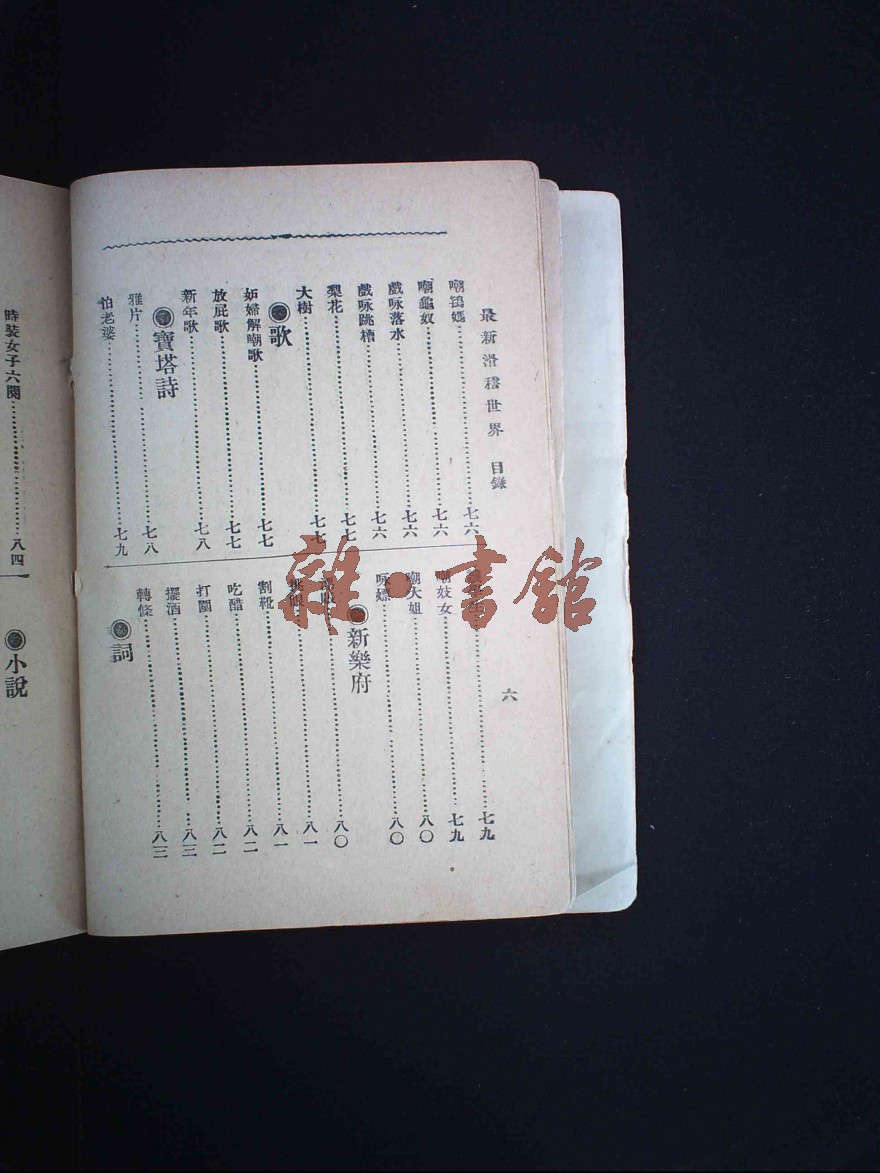 最新滑稽世界　目錄
六
嘲鴇媽……七六
嘲龜奴……七六
戲咏落水……七六
戲咏跳槽……七六
梨花……七七
大樹……七七
◉歌
妒婦解嘲歌……七七
放屁歌……七七
新年歌……七八
◉寶塔詩
雅片……七八
怕老婆……七九
……七九
嘲妓女……七九
嘲大姐……八〇
咏嫖……八〇
◉新樂府
……八〇
挑眼……八一
割靴……八一
吃醋……八二
打圍……八二
擺酒……八三
轉條……八三
◉詞
時裝女子六闋……八四
◉小說
雜·書館